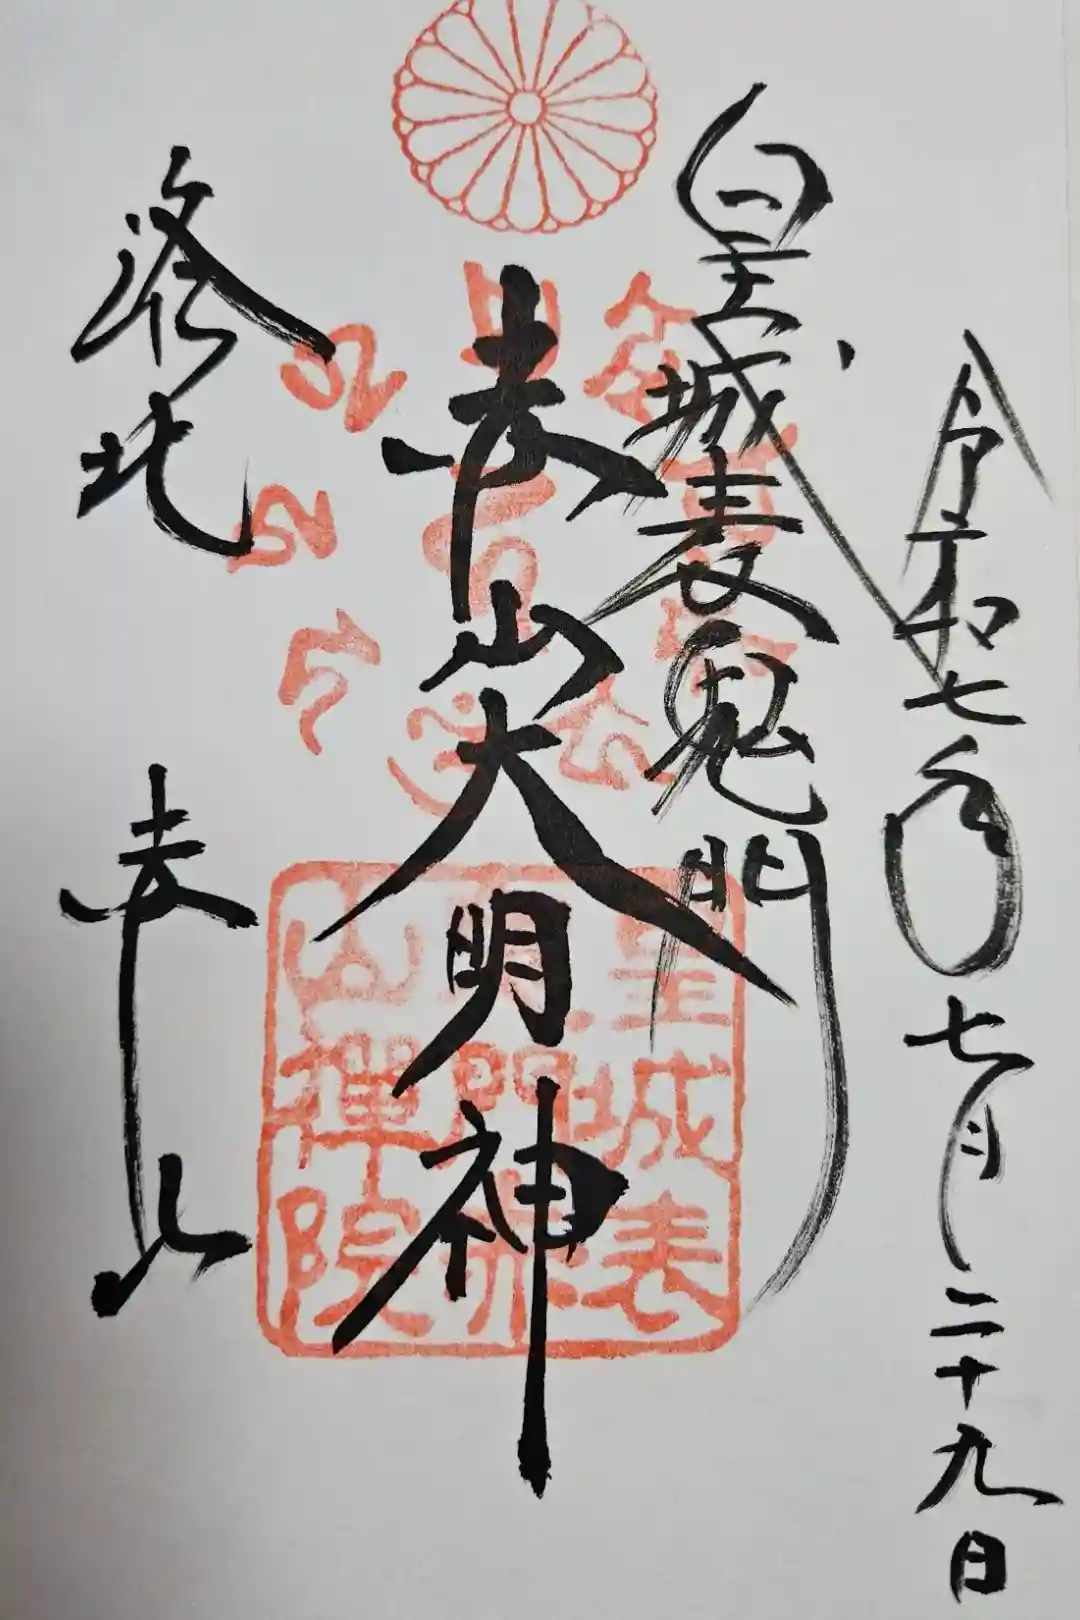 令和七年七月二十九日
皇城表鬼門
赤山大明神
洛北 赤山
皇城表
鬼門赤
山禅院